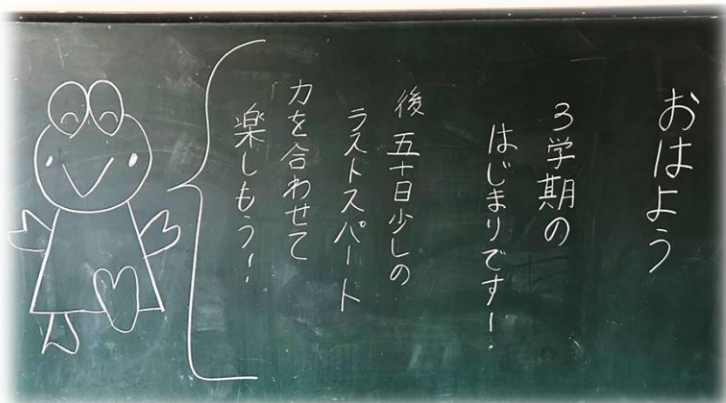 おはよう
3学期の
はじまりです!
後五十日少しの
ラストスパート
力を合わせて
楽しもう!